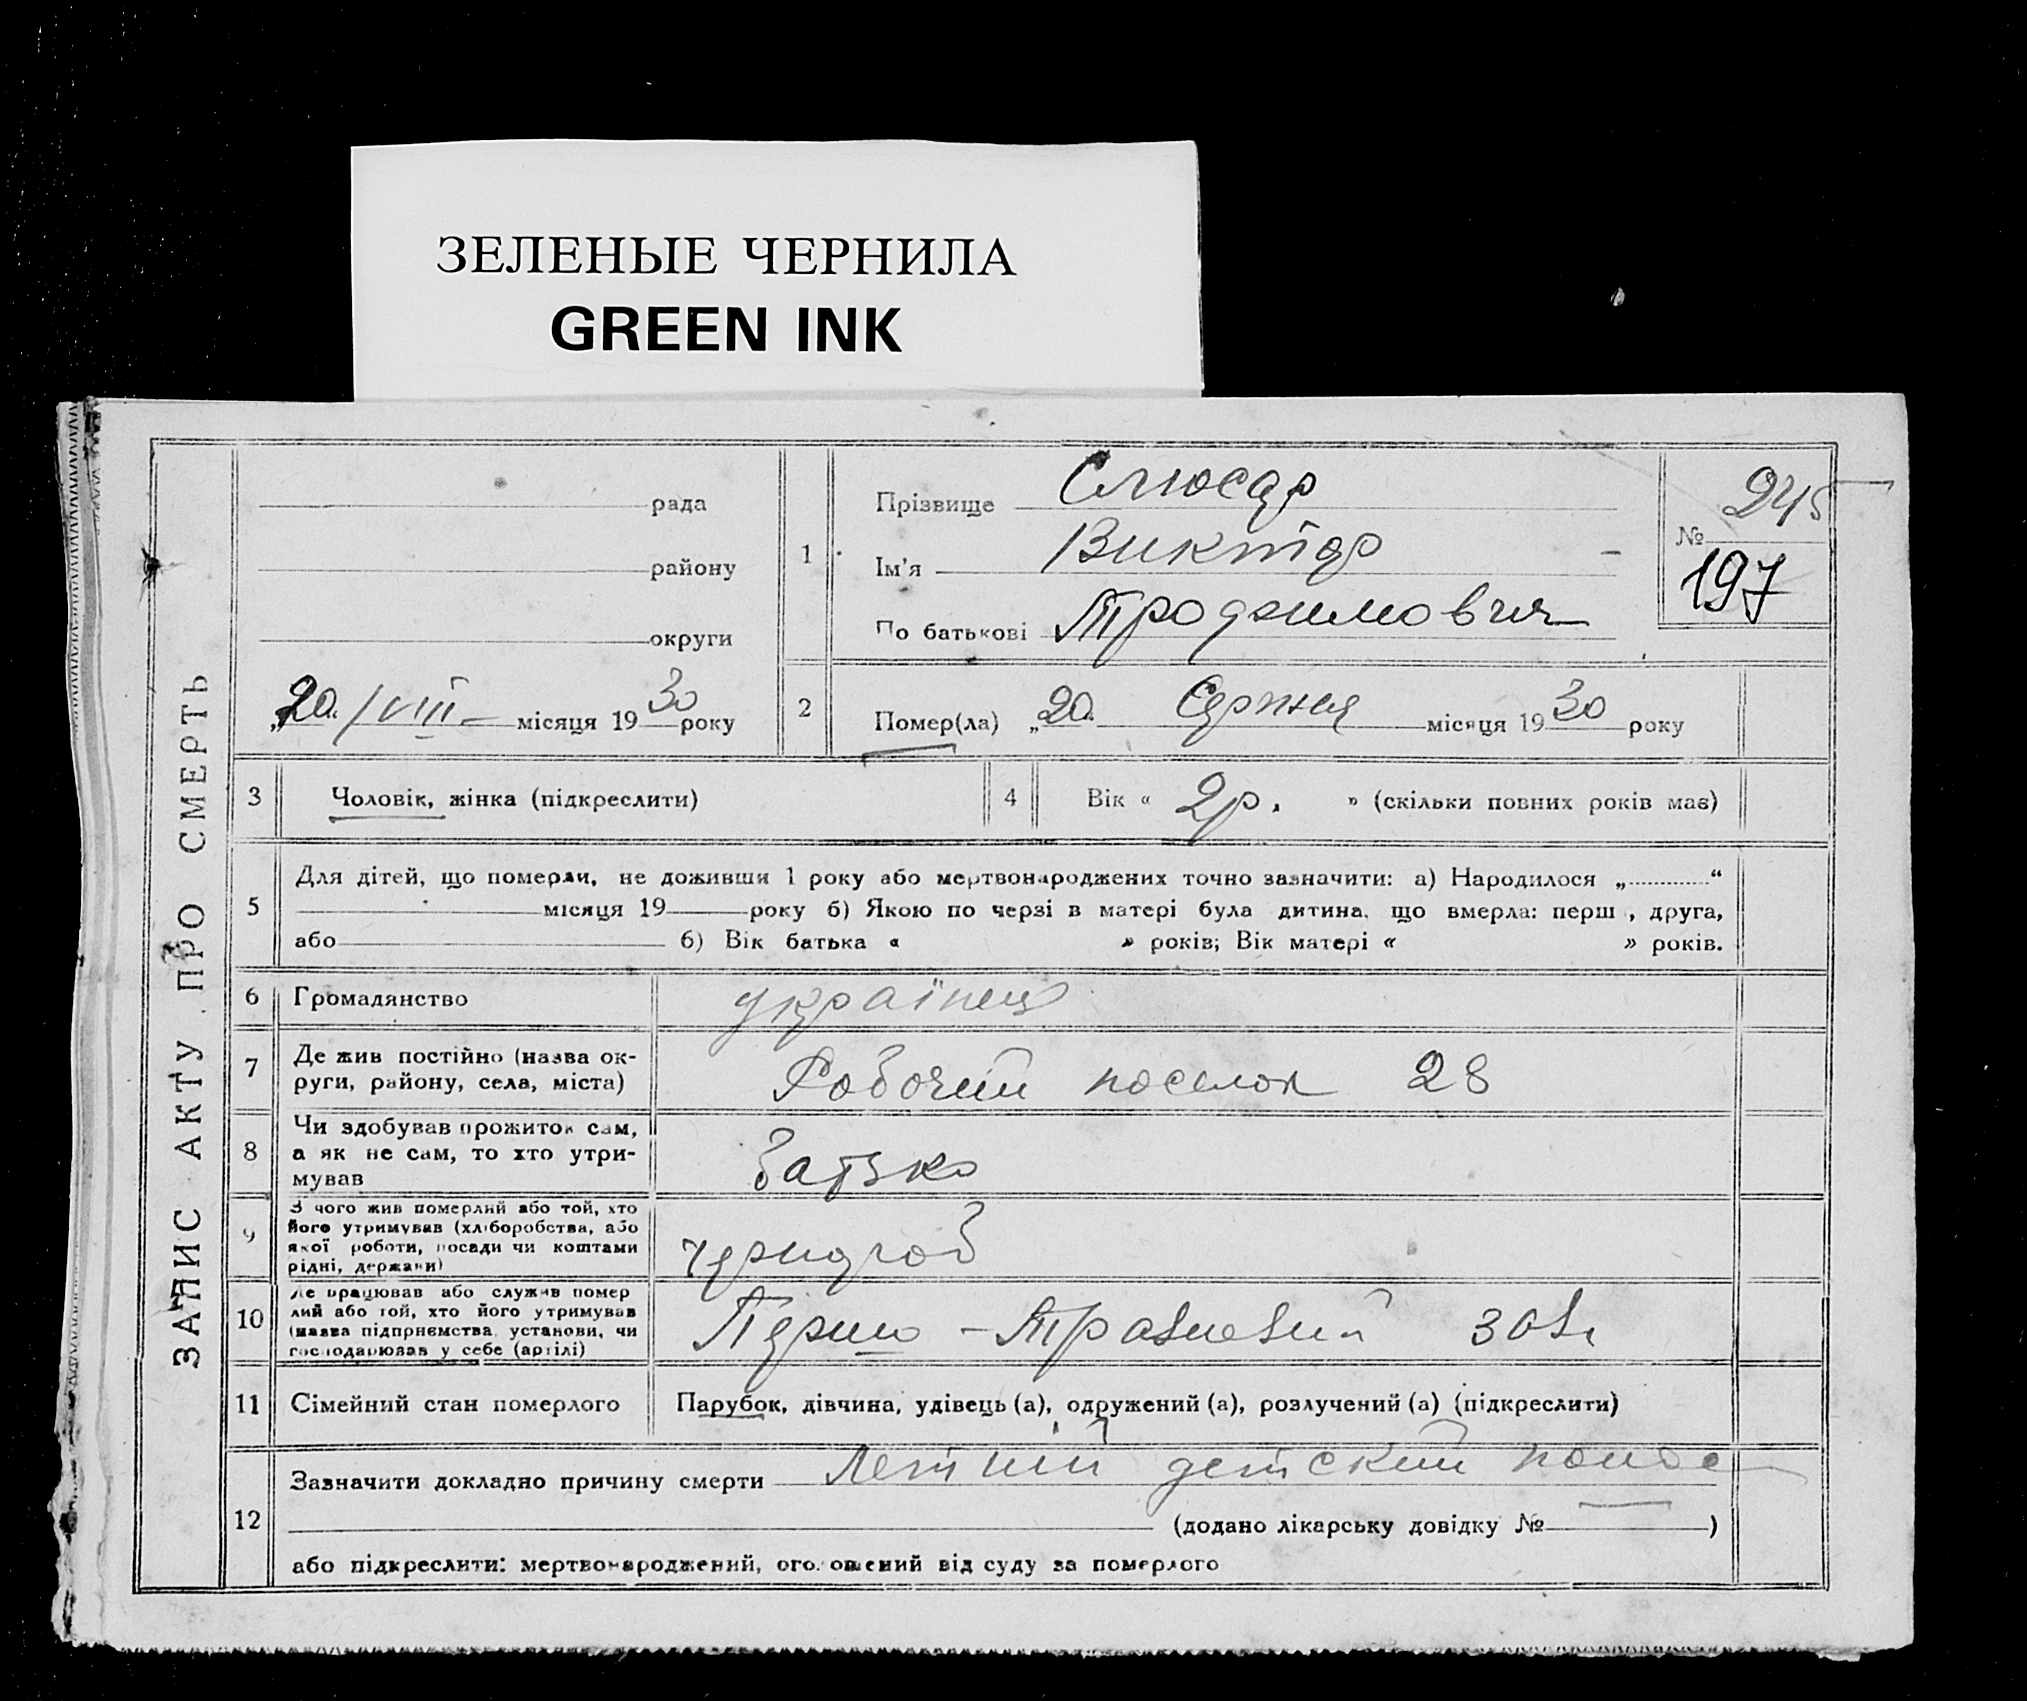 ЗЕЛЕНЫЕ ЧЕРНИЛА
GREEN INK
ЗАПИС АКТУ ПРО СМЕРТЬ
рада
району
округи
„20“ /VIII – місяця 1930 року
1
Прізвище Слюсар
Ім'я Виктор –
По батькові Трофимович
№ 245
197
2
Помер(ла) „20“ Серпня місяця 1930 року
3 Чоловік, жінка (підкреслити)
4 Вік « 2р. » (скільки повних років має)
5
Для дітей, що померли, не доживши 1 року або мертвонароджених точно зазначити: а) Народилося „ “
місяця 19 року б) Якою по черзі в матері була дитина, що вмерла: перш , друга,
або б) Вік батька « » років; Вік матері « » років.
6 Громадянство українец
7 Де жив постійно (назва ок-
руги, району, села, міста)
Робочий поселок 28
8
Чи здобував прожиток сам,
а як не сам, то хто утри-
мував
батько
9
З чого жив померлий або той, хто
його утримував (хліборобства, або
якої роботи, посади чи коштами
рідні, держави)
чернороб
10
Де працював або служив помер
лий або той, хто його утримував
(назва підприємства, установи, чи
господарював у себе (артілі)
Перто-Травневий зав.
11 Сімейний стан померлого Парубок, дівчина, удівець (а), одружений (а), розлучений (а) (підкреслити)
12
Зазначити докладно причину смерти Летний детский понос
(додано лікарську довідку № — )
або підкреслити: мертвонароджений, оголошений від суду за померлого